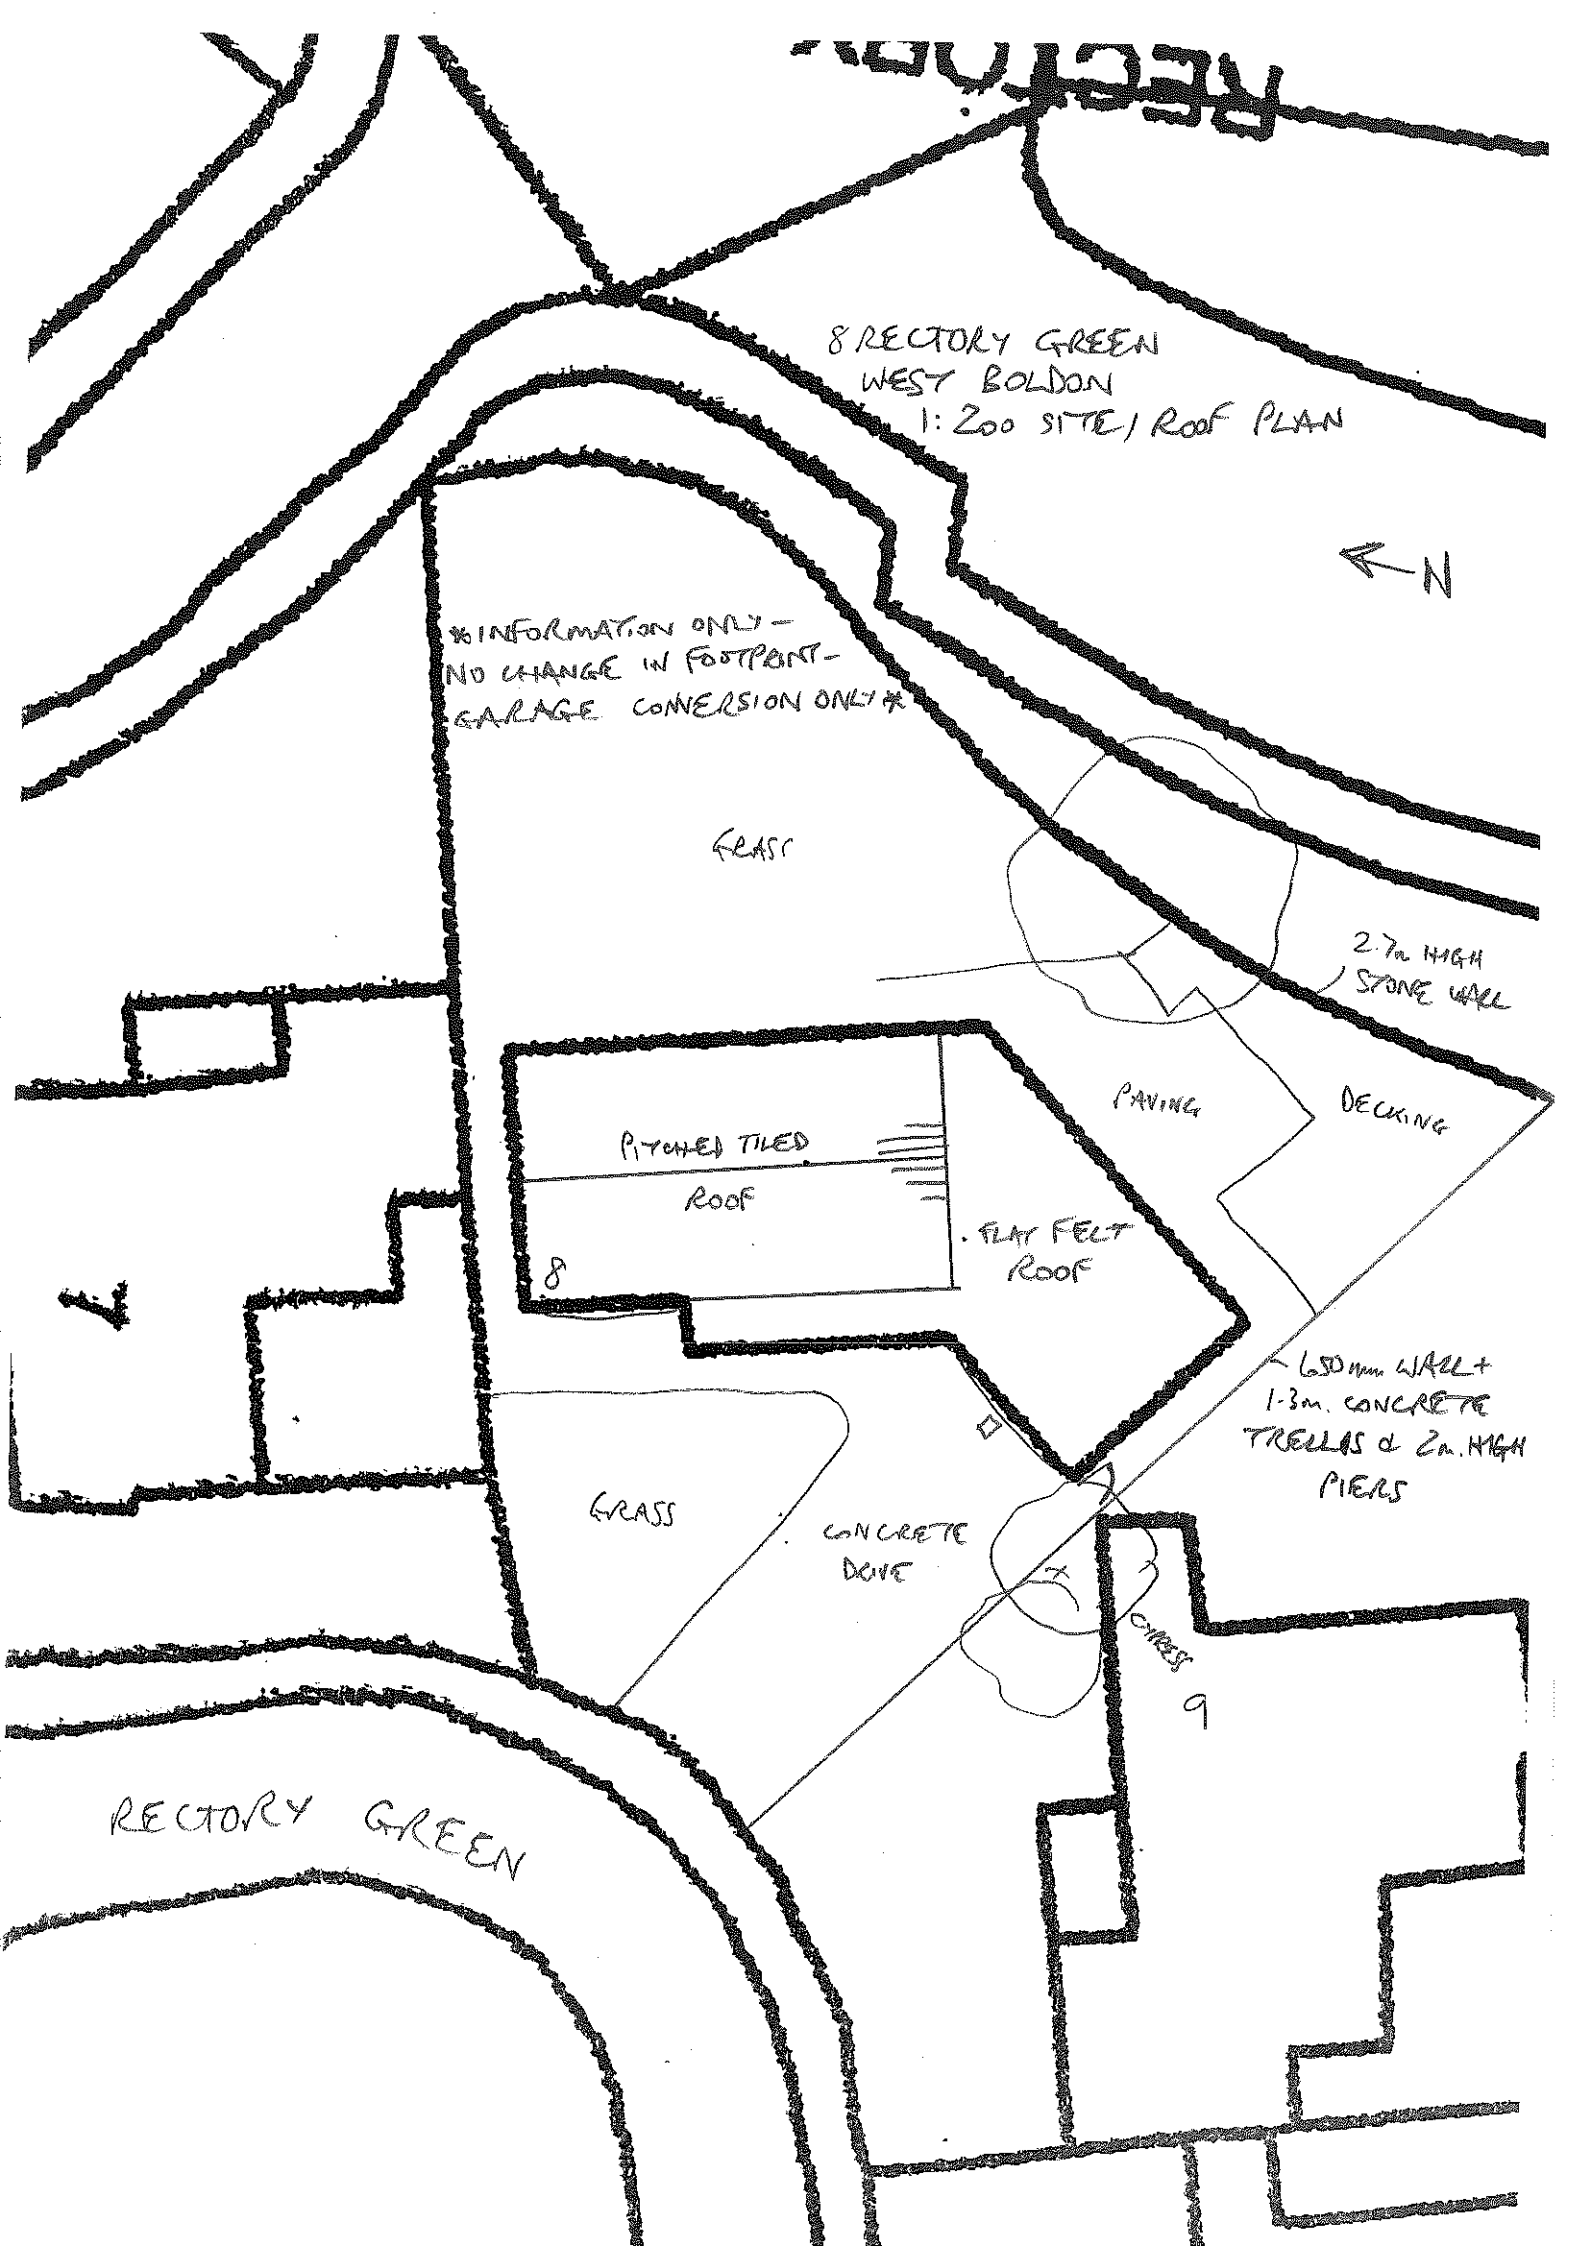 RECTORY
8 RECTORY GREEN
WEST BOLDON
1:200 SITE/ROOF PLAN
N
*INFORMATION ONLY-
NO CHANGE IN FOOTPRINT-
GARAGE CONVERSION ONLY*
GRASS
2.7m HIGH
STONE WALL
PAVING
DECKING
PITCHED TILED
ROOF
FLAT FELT
ROOF
8
650mm WALL +
1.3m. CONCRETE
TRELLIS & 2m. HIGH
PIERS
GRASS
CONCRETE
DRIVE
CYPRESS
9
RECTORY GREEN